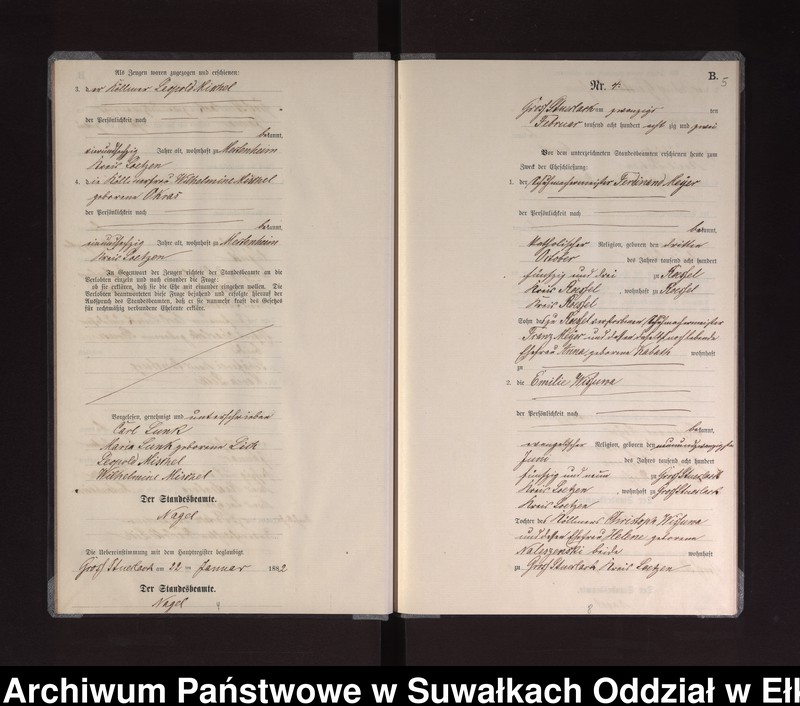 Als Zeugen waren zugezogen und erschienen:
3. der Köllmer Leopold Miskel
der Persönlichkeit nach
bekannt,
vierundsechzig Jahre alt, wohnhaft zu Mertenheim
Kreis Loetzen
4. die Köllmerfrau Wilhelmine Miskel
geborene
der Persönlichkeit nach
bekannt,
Jahre alt, wohnhaft zu Mertenheim
Kreis Loetzen
In Gegenwart der Zeugen richtete der Standesbeamte an die
Verlobten einzeln und nach einander die Frage:
ob sie erklären, daß sie die Ehe mit einander eingehen wollen. Die
Verlobten beantworteten diese Frage bejahend und erfolgte hierauf der
Ausspruch des Standesbeamten, daß er sie nunmehr kraft des Gesetzes
für rechtmäßig verbundene Eheleute erkläre.
Vorgelesen, genehmigt und unterschrieben
Carl Lunk
Maria Lunk geborene
Leopold Miskel
Wilhelmine Miskel
Der Standesbeamte.
Nagel
Die Uebereinstimmung mit dem Hauptregister beglaubigt.
Groß Stuerlack am 22 ten Januar 1882
Der Standesbeamte.
Nagel
B.
5
Nr. 4.
Groß Stuerlack am zwanzigs ten
Februar tausend acht hundert acht zig und zwei
Vor dem unterzeichneten Standesbeamten erschienen heute zum
Zweck der Eheschließung:
1. der Schuhmachermeister Ferdinand Meyer
der Persönlichkeit nach
bekannt,
katholischer Religion, geboren den dritten
October des Jahres tausend acht hundert
fünfzig und drei zu Roessel
Kreis Roessel, wohnhaft zu Roessel
Kreis Roessel
Sohn des zu Roessel verstorbenen Schuhmachermeister
Franz Meyer und dessen daselbst noch lebende
Ehefrau Anna geborene Kabath wohnhaft
zu
2. die Emilie
der Persönlichkeit nach
bekannt,
evangelischer Religion, geboren den neunundzwanzigsten
Juni des Jahres tausend acht hundert
fünfzig und neun zu Groß Stuerlack
Kreis Loetzen, wohnhaft zu Groß Stuerlack
Kreis Loetzen
Tochter des Köllmers Christoph
und dessen Ehefrau Helene geborene
beide wohnhaft
zu Groß Stuerlack Kreis Loetzen
Archiwum Państwowe w Suwałkach Oddział w Ełk